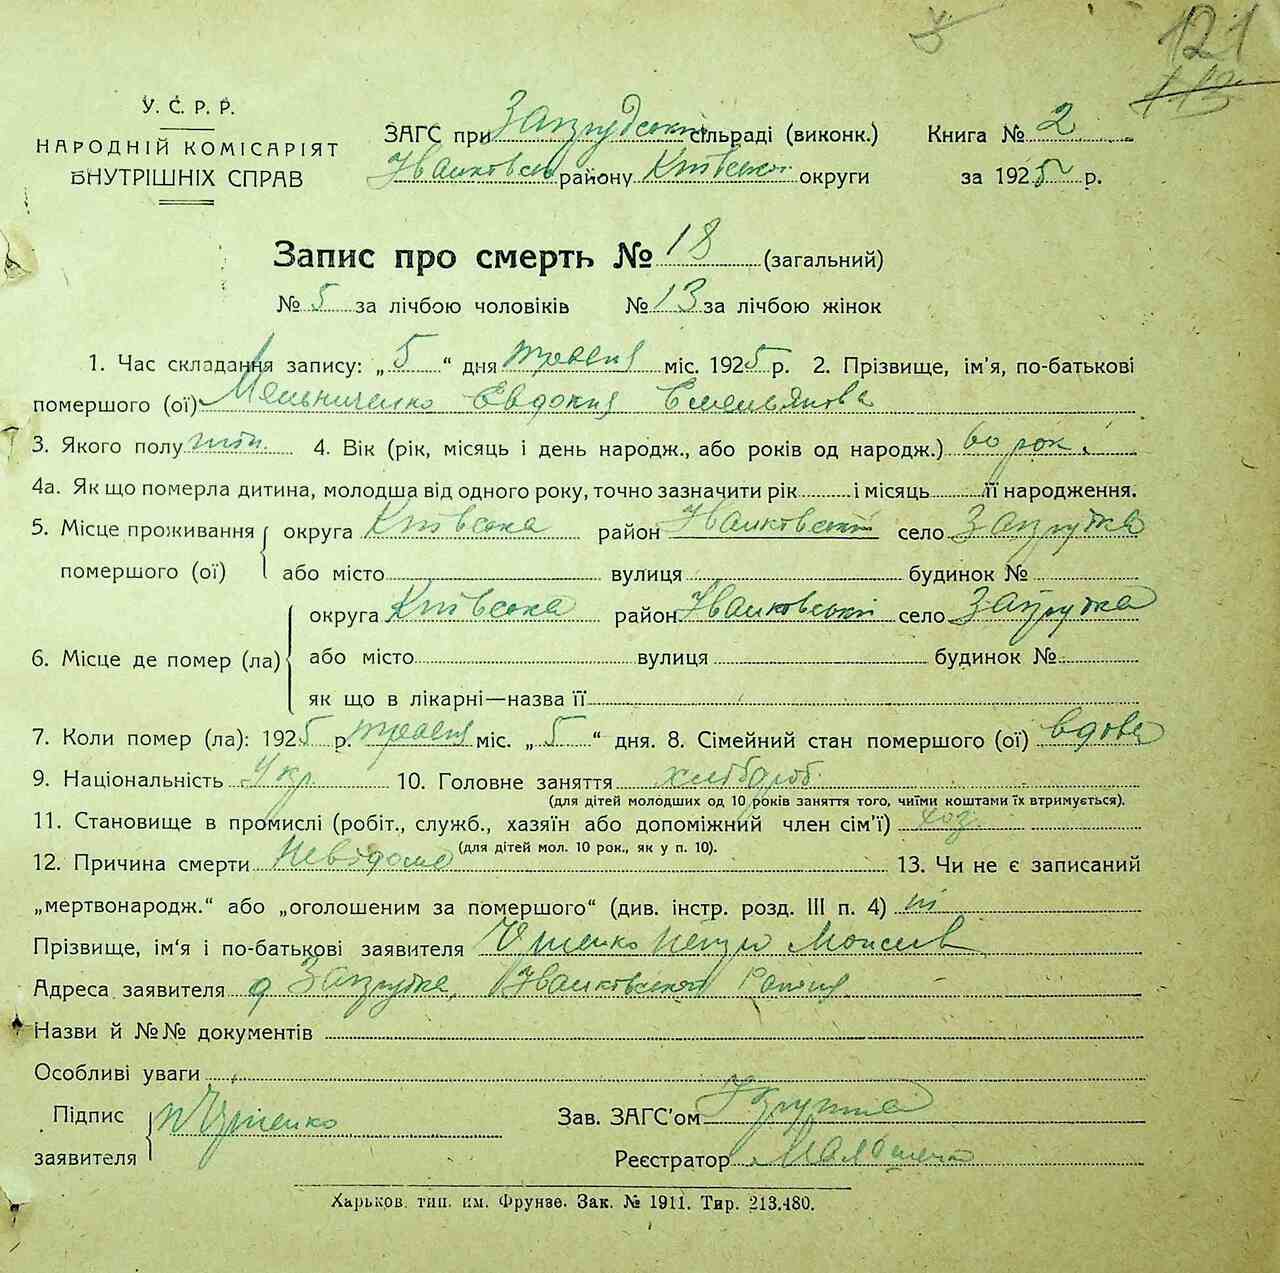 121
У. С. Р. Р.
НАРОДНІЙ КОМІСАРІЯТ
ВНУТРІШНІХ СПРАВ
ЗАГС при сільраді (виконк.) Книга № 2
району Київської округи за 1925 р.
Запис про смерть № 18 (загальний)
№ 5 за лічбою чоловіків № 13 за лічбою жінок
1. Час складання запису: „5“ дня травня міс. 1925 р. 2. Прізвище, ім'я, по-батькові
помершого (ої) Мельниченко Евдокия Емельянова
3. Якого полу жін. 4. Вік (рік, місяць і день народж., або років од народж.) 60 рок.
4а. Як що померла дитина, молодша від одного року, точно зазначити рік і місяць її народження.
5. Місце проживання помершого (ої) округа Київська район Іванковській село Запрудка
або місто вулиця будинок №
6. Місце де помер (ла) округа Київська район Іванковській село Запрудка
або місто вулиця будинок №
як що в лікарні—назва її
7. Коли помер (ла): 1925 р. травня міс. „5“ дня. 8. Сімейний стан помершого (ої) вдова
9. Національність Укр. 10. Головне заняття хлібороб.
(для дітей молодших од 10 років заняття того, чиїми коштами їх втримується).
11. Становище в промислі (робіт., служб., хазяїн або допоміжний член сім'ї) хоз.
(для дітей мол. 10 рок., як у п. 10).
12. Причина смерти Невідома 13. Чи не є записаний
„мертвонародж.“ або „оголошеним за помершого“ (див. інстр. розд. III п. 4) ні
Прізвище, ім'я і по-батькові заявителя Моисеев
Адреса заявителя Запрудка, Іванковского
Назви й №№ документів
Особливі уваги
Підпис заявителя
Зав. ЗАГС'ом
Реєстратор
Харьков. тип. им. Фрунзе. Зак. № 1911. Тир. 213.480.